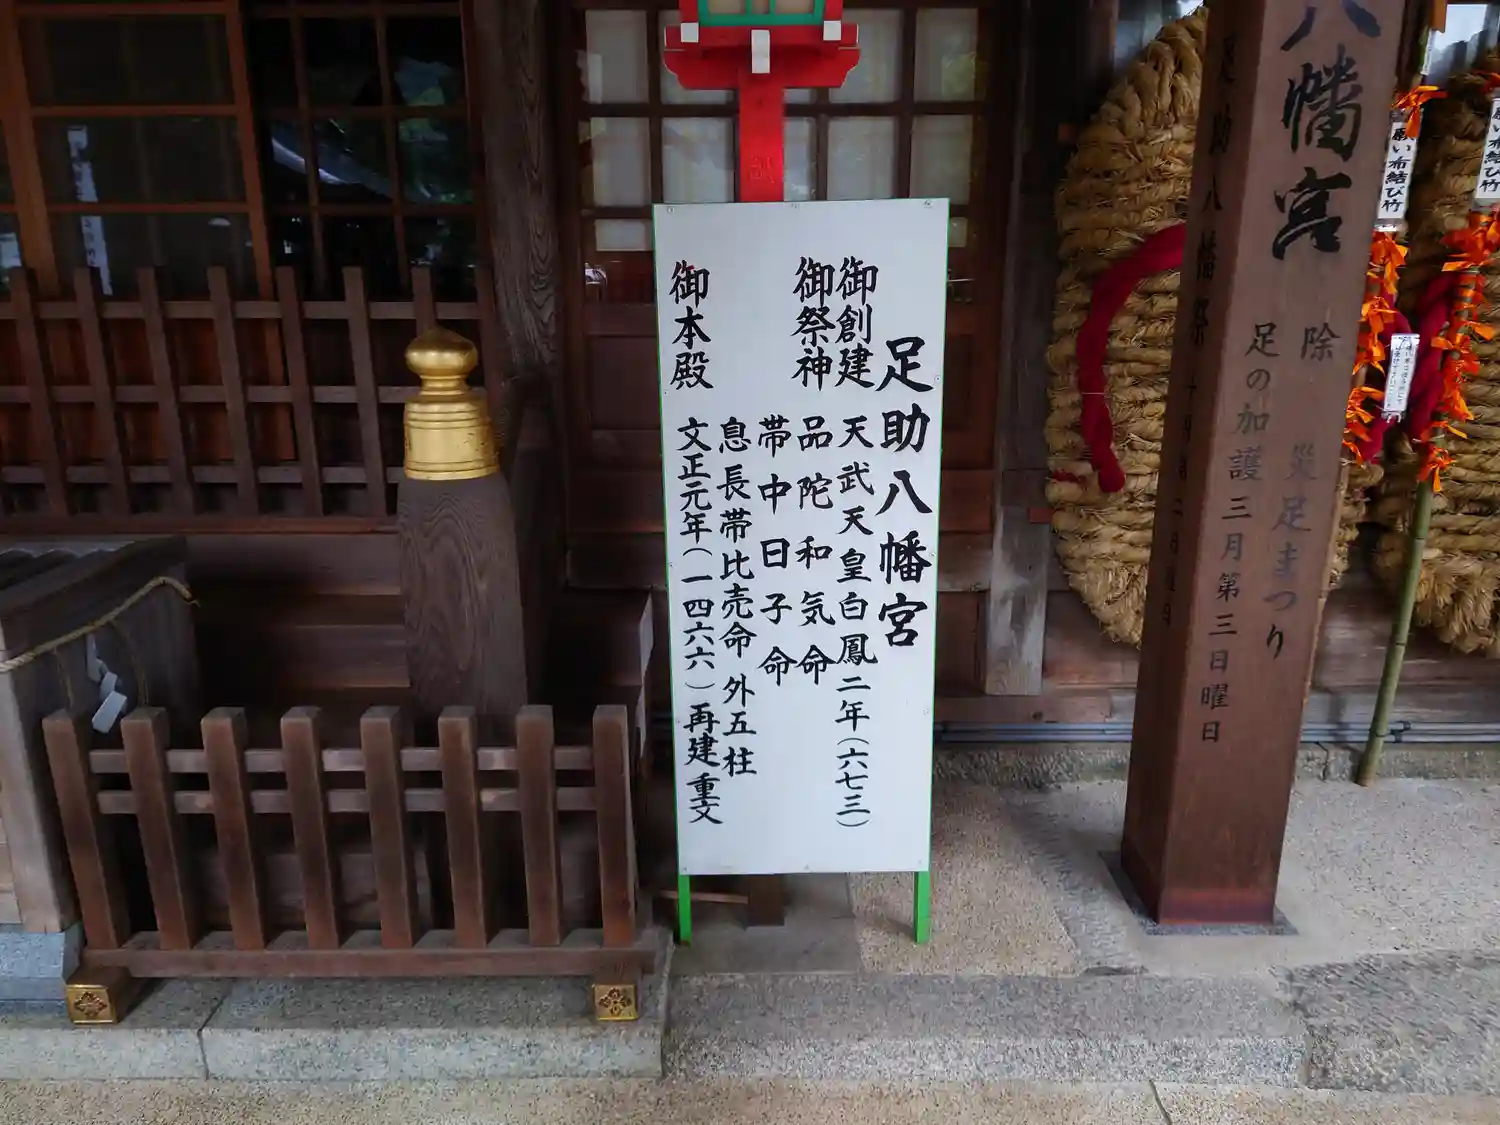 足助八幡宮
御創建 天武天皇白鳳二年(六七三)
御祭神 品陀和気命
帯中日子命
息長帯比売命 外五柱
御本殿 文正元年(一四六六)再建 重文
八幡宮
除災足まつり
足の加護 三月第三日曜日
足助八幡祭
願い布結び竹
願い布結び竹